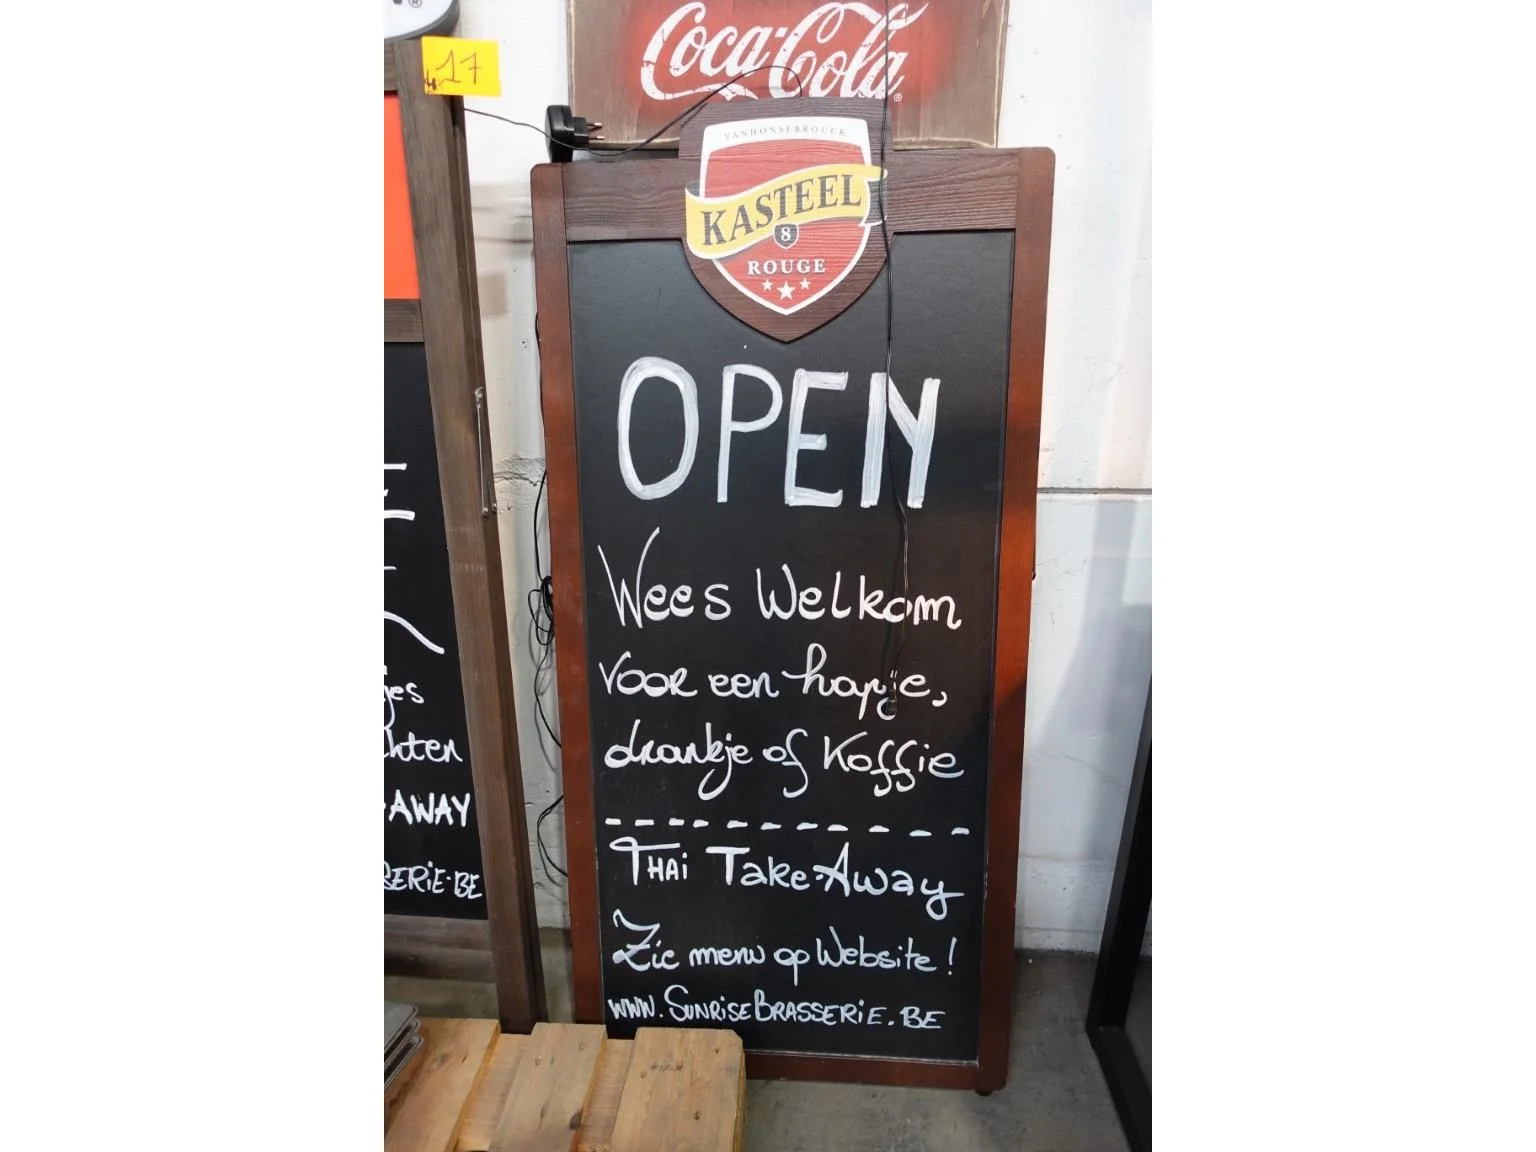 17
Coca-Cola
VANHONSEBROUCK
KASTEEL
8
ROUGE
OPEN
Wees Welkom
voor een hapje,
drankje of koffie
THAi Take-Away
Zie menu op Website!
www.SunriseBrasserie.BE
AWAY